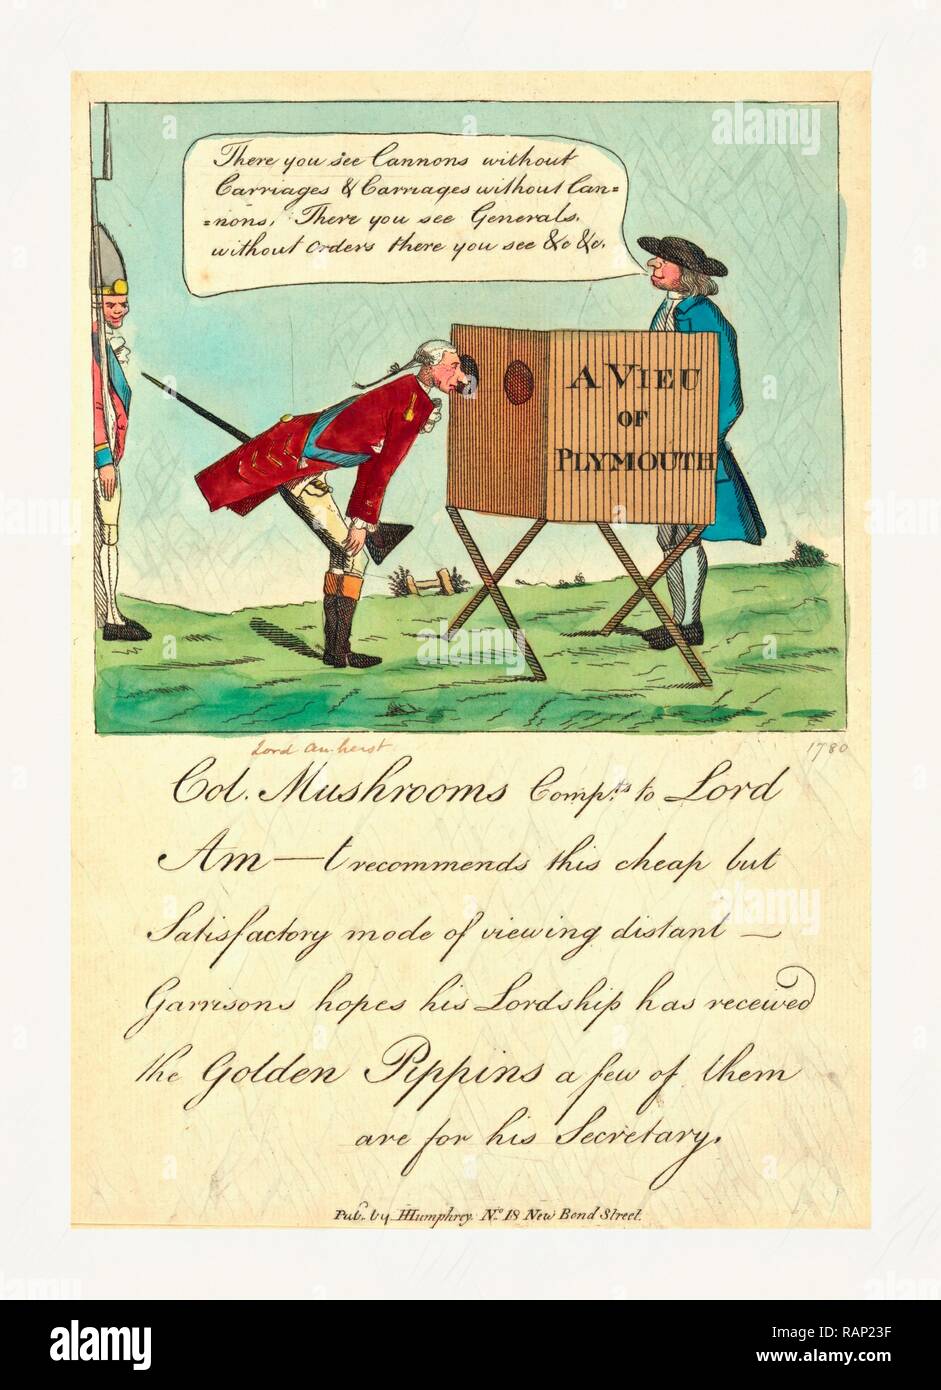 There you see Cannons without
Carriages & Carriages without Can=
=nons, There you see Generals,
without orders there you see &c &c.
A VIEU
OF
PLYMOUTH
Lord Amherst
1780
Col. Mushrooms Comp.ts to Lord
Am—t recommends this cheap but
Satisfactory mode of viewing distant —
Garrisons hopes his Lordship has received
the Golden Pippins a few of them
are for his Secretary.
Pub. by HHumphrey No. 18 New Bond Street.
alamy
alamy
alamy
Image ID: RAP23F
www.alamy.com